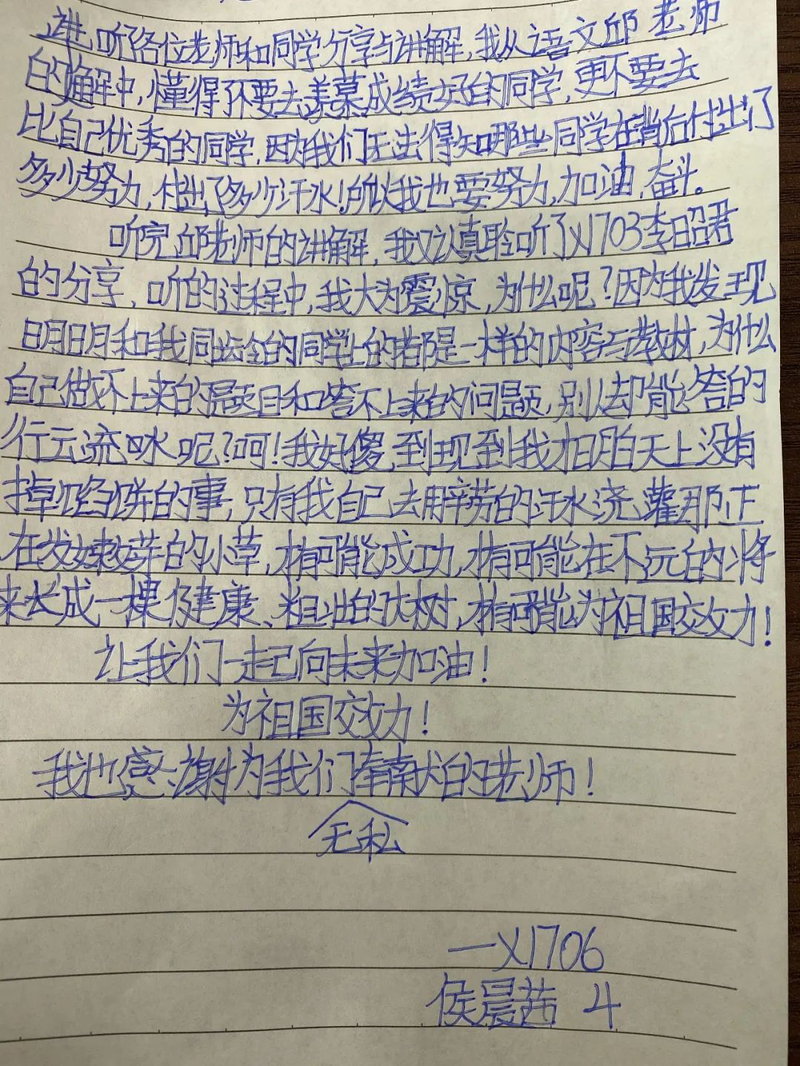 进,听各位老师和同学分享与讲解,我从语文邱老师
的确解中,懂得了不要去羡慕成绩好的同学,更不要去
比自己优秀的同学,因为我们无法得知哪些同学在背后付出了
多少努力,付出了多少汗水!所以我也要努力,加油,奋斗。
听完邱老师的讲解,我又认真聆听了X1703李昭君
的分享,听的过程中,我大为震惊,为什么呢?因为我发现
明明和我同龄的同学上的都是一样的内容与教材,为什么
自己做不上来的题目和答不上来的问题,别人却能答的
行云流水呢?呵!我好傻,到现到我才明白天上没有
掉馅饼的事,只有我自己去用辛劳的汗水浇灌那正
在发嫩芽的小草,才有可能成功,才有可能在不远的将
来长成一棵健康、粗壮的大树,才有可能为祖国效力!
让我们一起向未来加油!
为祖国效力!
我也感谢为我们奉献的老师!
无私
一X1706
侯晨茜 4